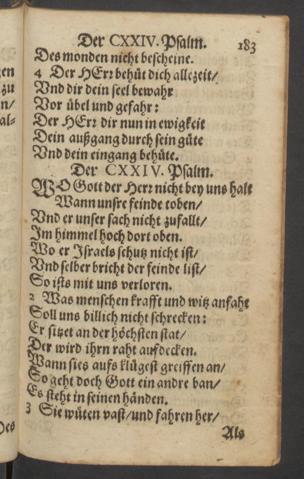 Der CXXIV. Psalm. 183
Des monden nicht bescheine.
4 Der HErr behüt dich allezeit/
Vnd dir dein seel bewahr
Vor übel und gefahr:
Der HErr dir nun in ewigkeit
Dein außgang durch sein güte
Vnd dein eingang behüte.
Der CXXIV. Psalm.
WO Gott der Herr nicht bey uns halt
Wann unsre feinde toben/
Vnd er unser sach nicht zufallt/
Im himmel hoch dort oben.
Wo er Israels schutz nicht ist/
Vnd selber bricht der feinde list/
So ists mit uns verloren.
2 Was menschen krafft und witz anfaht
Soll uns billich nicht schrecken:
Er sitzet an der höchsten stat/
Der wird ihrn raht aufdecken.
Wann sies aufs klügest greiffen an/
So geht doch Gott ein andre ban/
Es steht in seinen händen.
3 Sie wüten vast/und fahren her/
Als
en
zu
n/
al-
Des